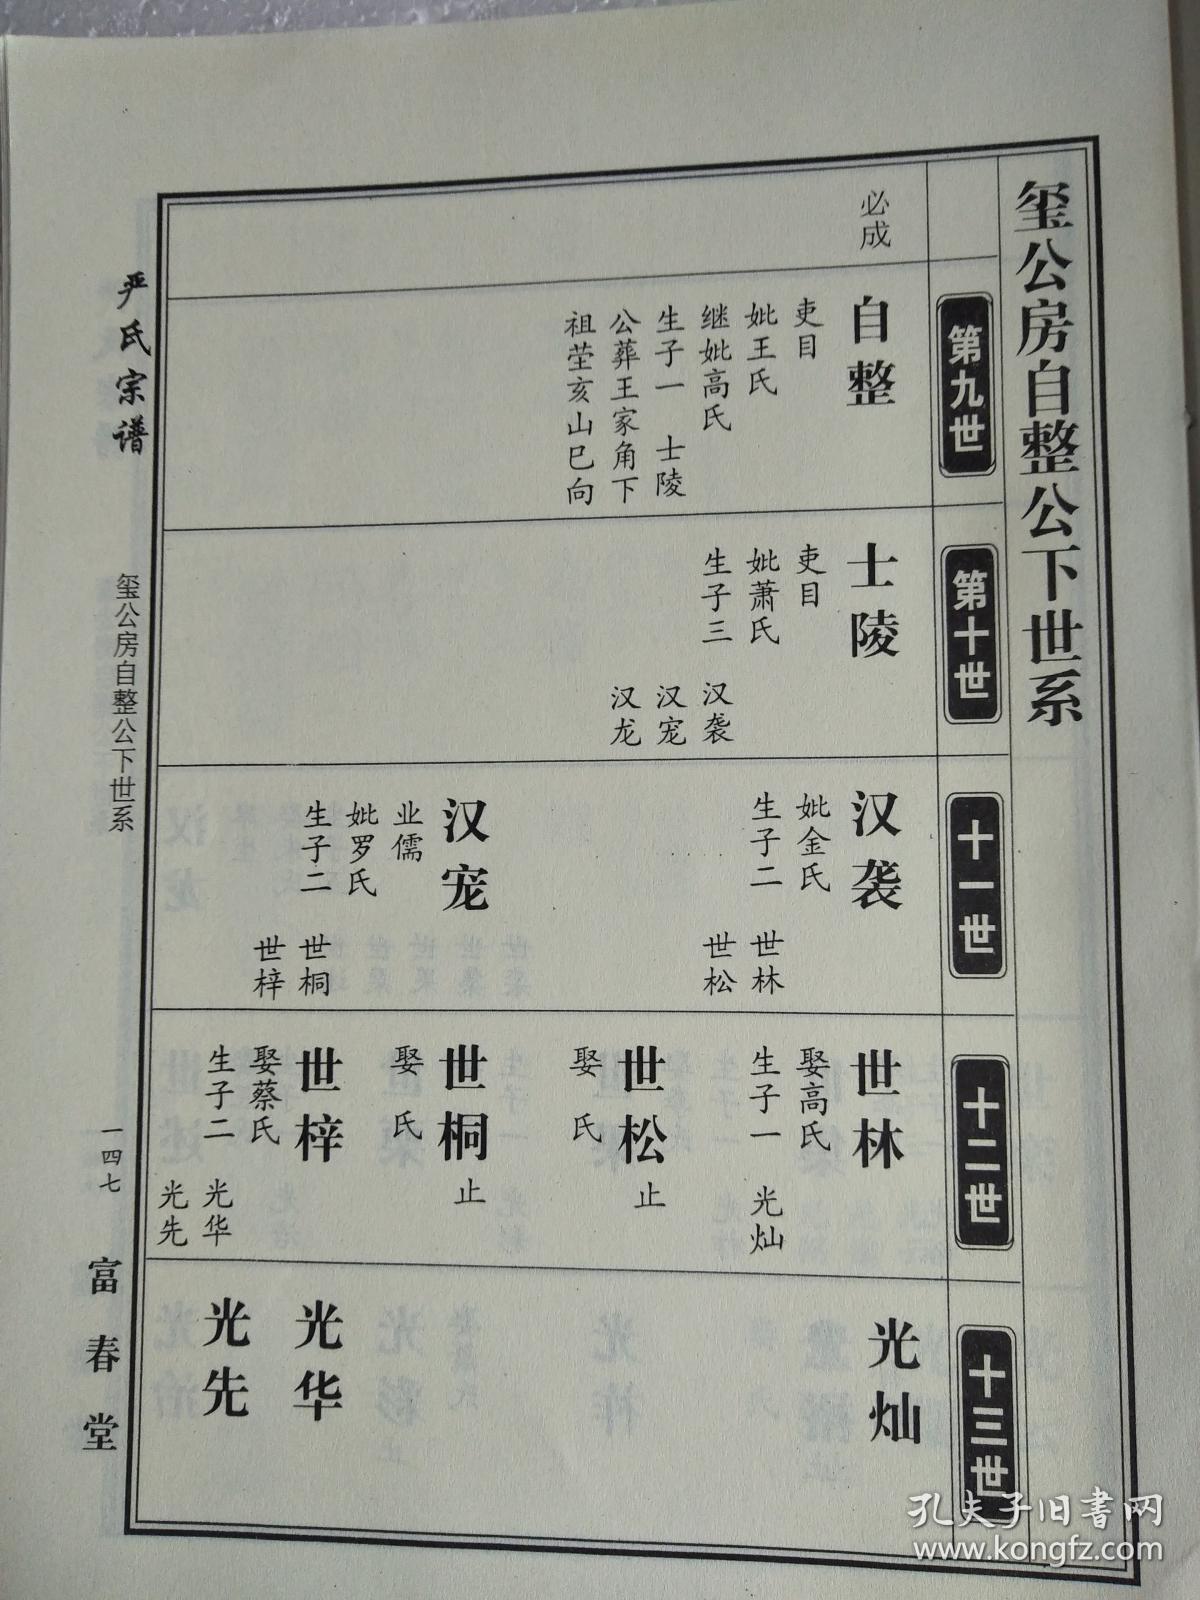 玺公房自整公下世系
第九世
必成
自整
吏目
妣王氏
继妣高氏
生子一 士陵
公葬王家角下
祖茔亥山巳向
第十世
士陵
吏目
妣萧氏
生子三 汉袭
汉宠
汉龙
十一世
汉袭
妣金氏
生子二 世林
世松
汉宠
业儒
妣罗氏
生子二 世桐
世梓
十二世
世林
娶高氏
生子一 光灿
世松 止
娶 氏
世桐 止
娶 氏
世梓
娶蔡氏
生子二 光华
光先
十三世
光灿
光华
光先
严氏宗谱
玺公房自整公下世系
一四七
富春堂
孔夫子旧书网
www.kongfz.com